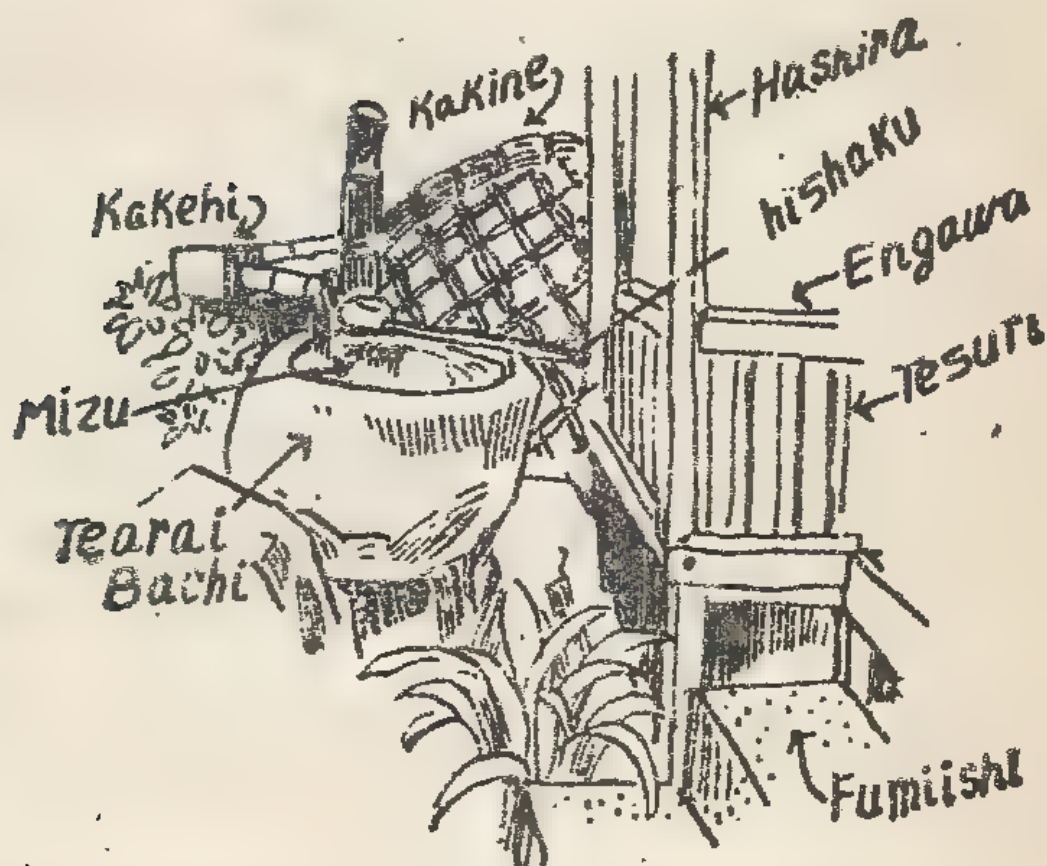 Kakine
Hashira
hishaku
Kakehi
Engawa
Tesuri
Mizu
Tearai
Bachi
Fumiishi